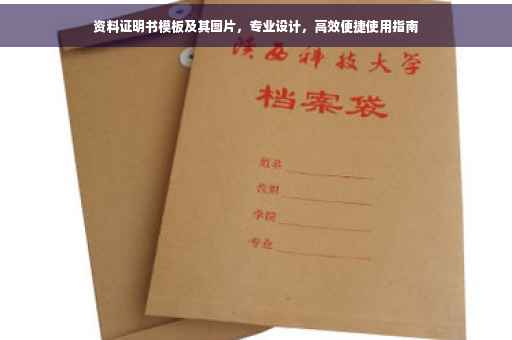 资料证明书模板及其图片，专业设计，高效便捷使用指南
陕西科技大学
档案袋
姓名
学院
专业